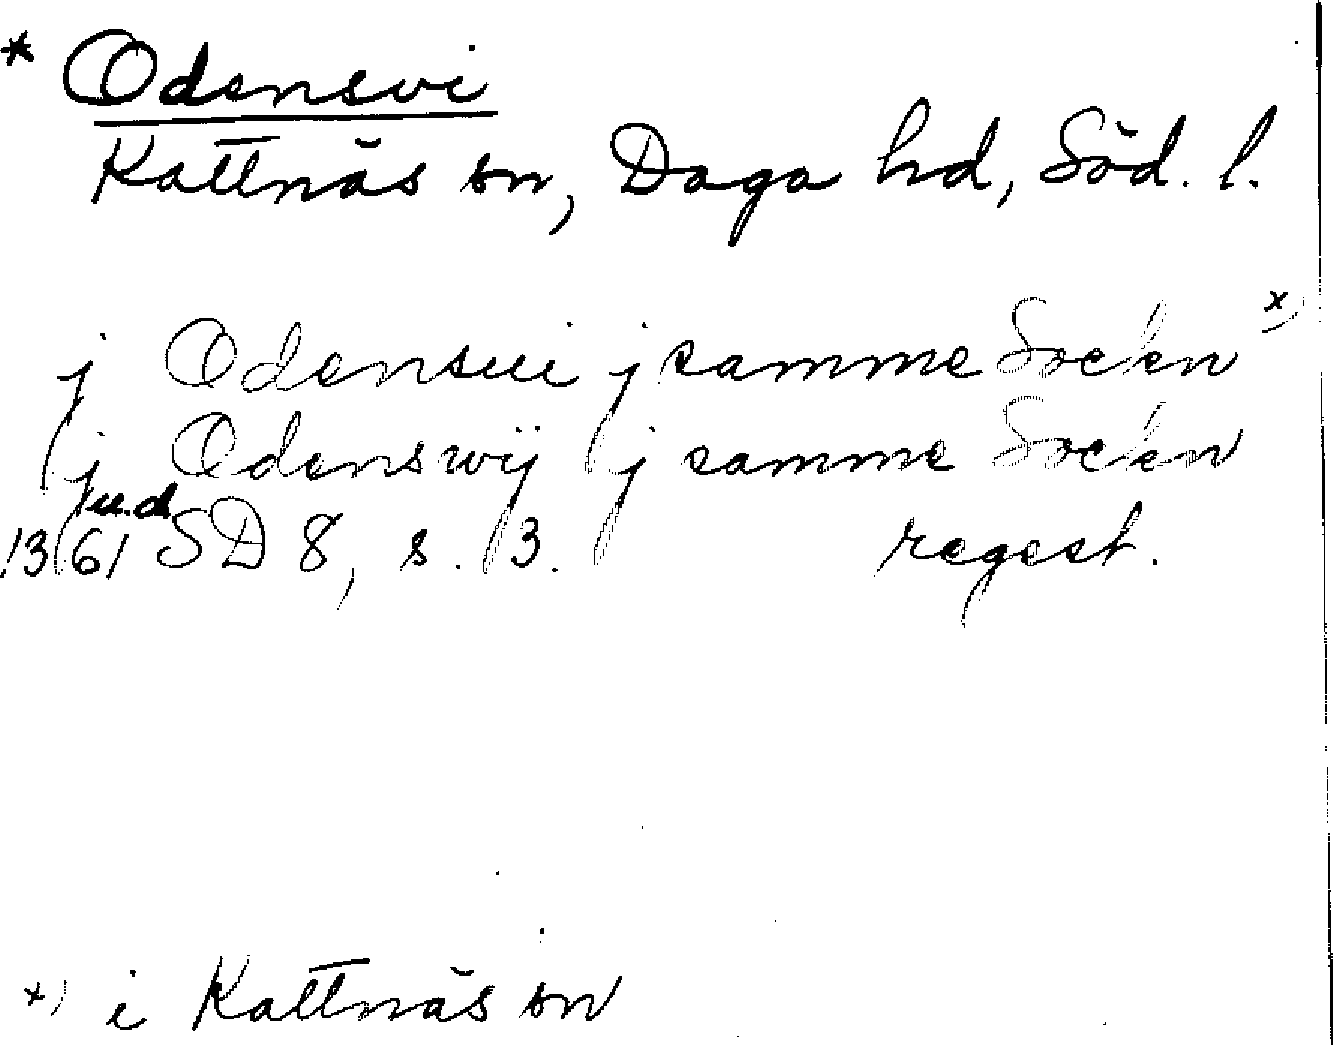 * Odensvi
Kattnäs sn, Daga hd, Söd. l.
j Odensuii j samme Socken x)
j Odenswij j samme Socken
1361 u.d. SD 8, s. 13. regest.
x) i Kattnäs sn